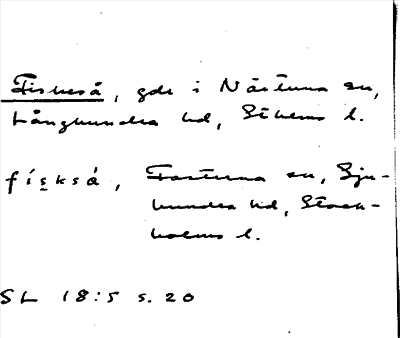 Fiskeså, gde i Närtuna sn,
Långhundra hd, Sthlms l.
físk̲så, Fasterna sn, Sju-
hundra hd, Stock-
holms l.
SL 18:5 s. 20